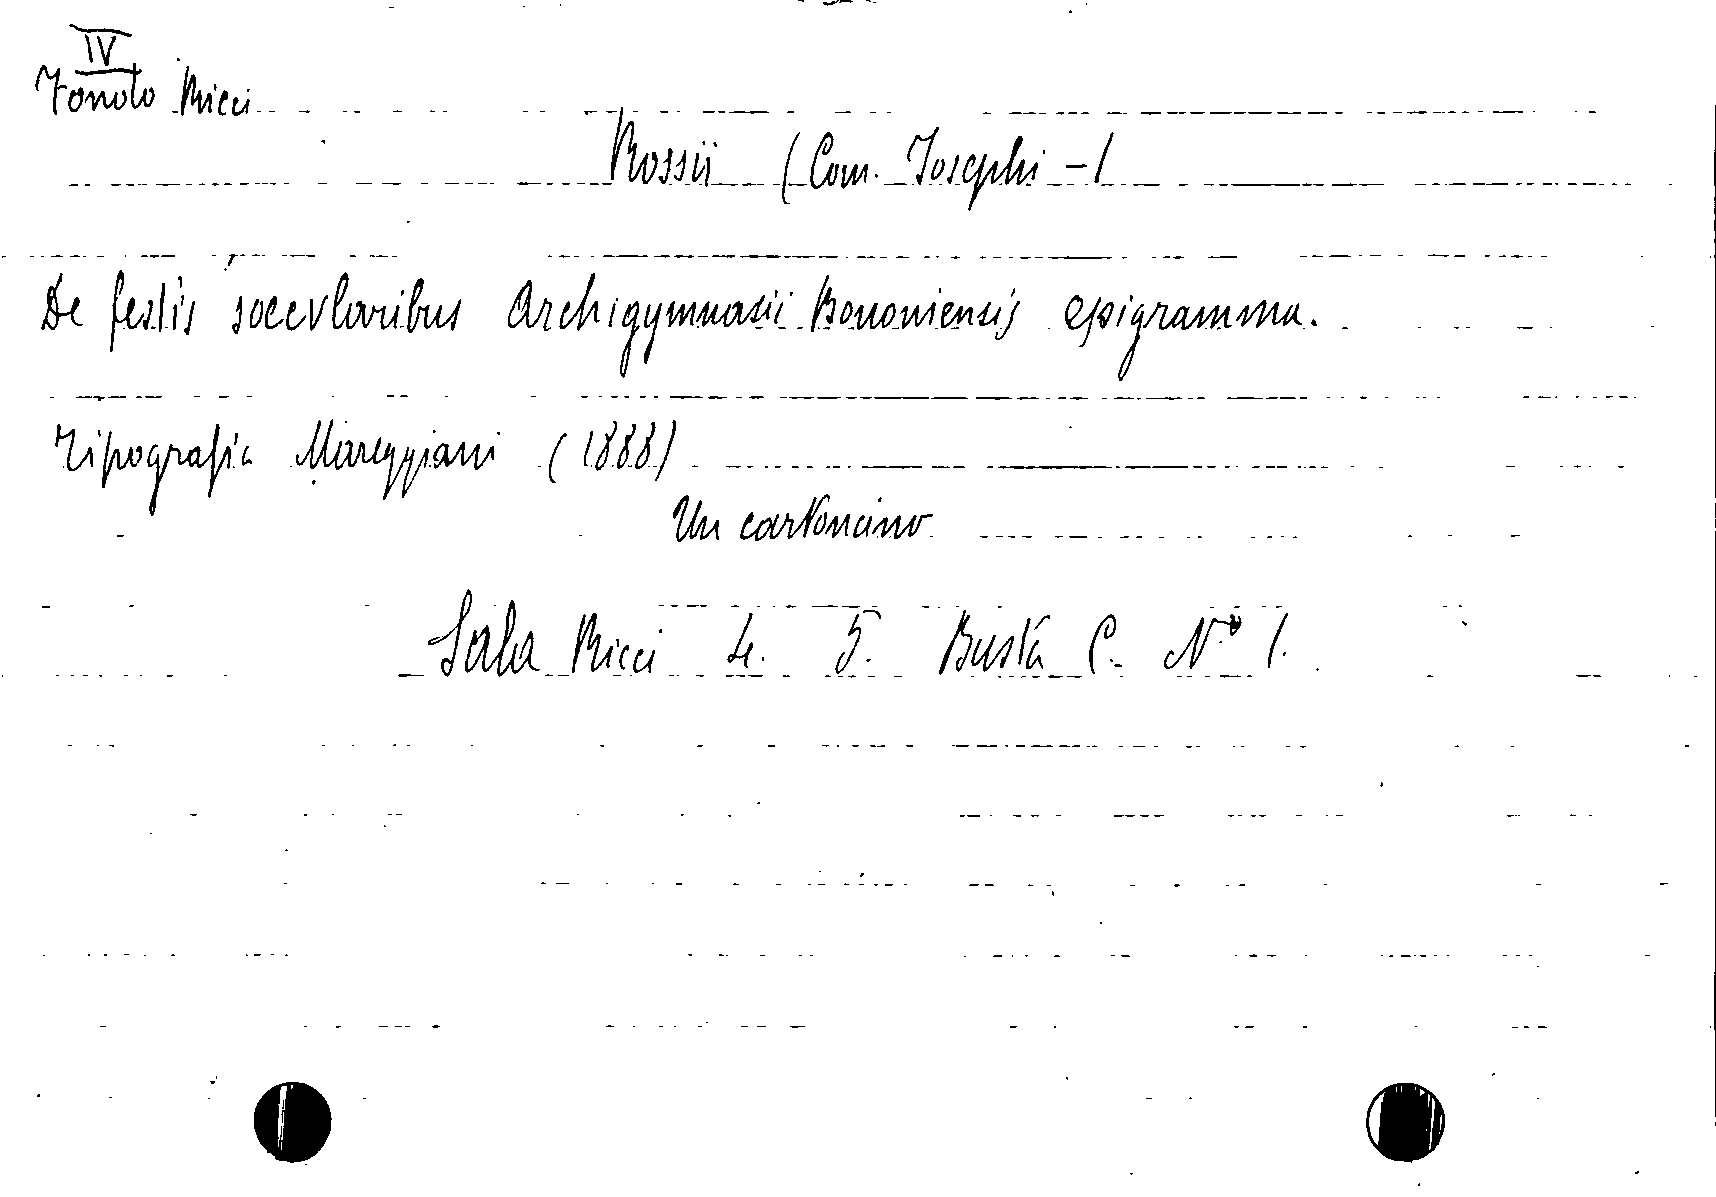 IV
Fondo Ricci
Rossii (Com. Josephi -)
De festis saecvlaribus Archigymnasii Bononiensis epigramma.
Tipografia Mareggiani (1888)
Un cartoncino
Sala Ricci 4. 5. Busta C. N° 1.